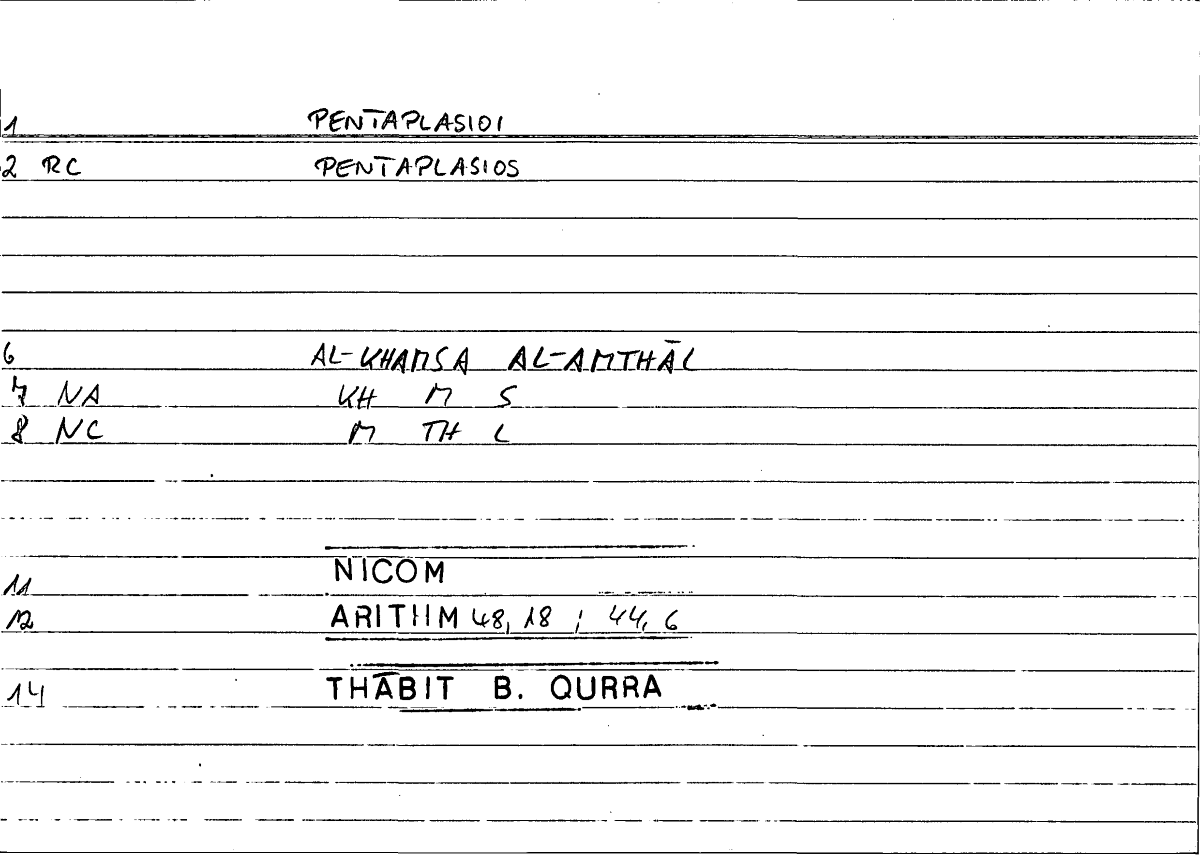 1 PENTAPLASIOI
2 RC PENTAPLASIOS
6 AL-KHAMSA AL-AMTHĀL
7 NA KH M S
8 NC M TH L
11 NICOM
12 ARITHM 48, 18 ; 44, 6
14 THĀBIT B. QURRA